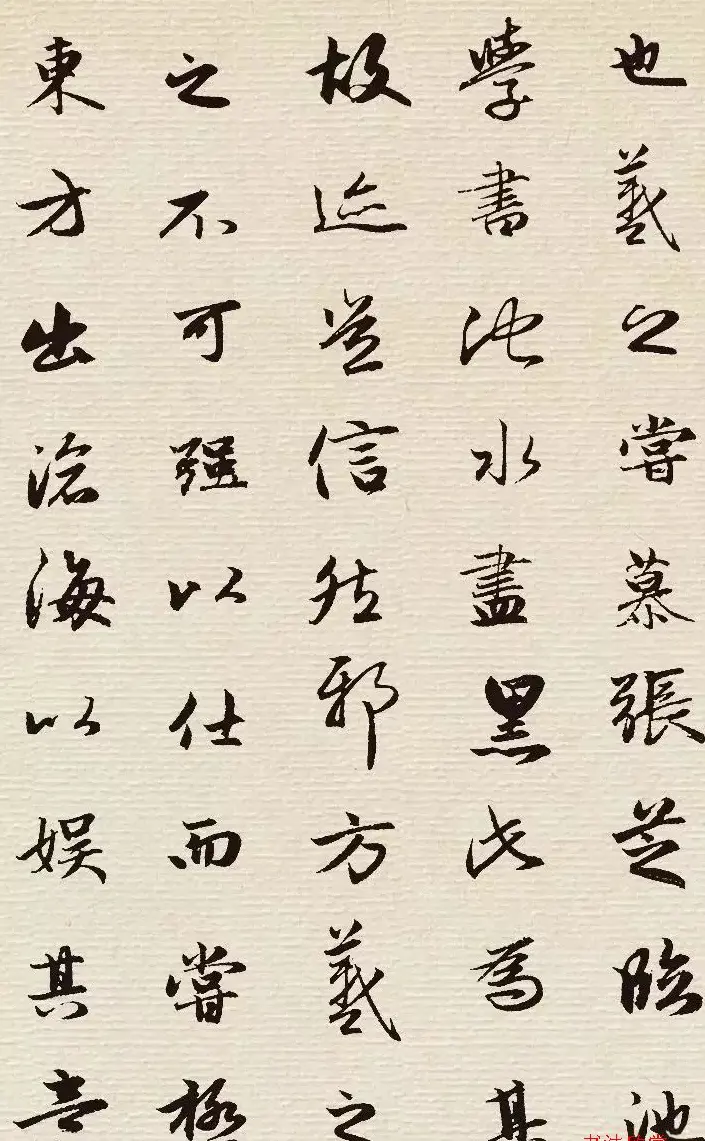 也羲之嘗慕張芝臨池
學書池水盡黑此為其
故迹豈信然邪方羲之
之不可强以仕而嘗極
東方出滄海以娛其意